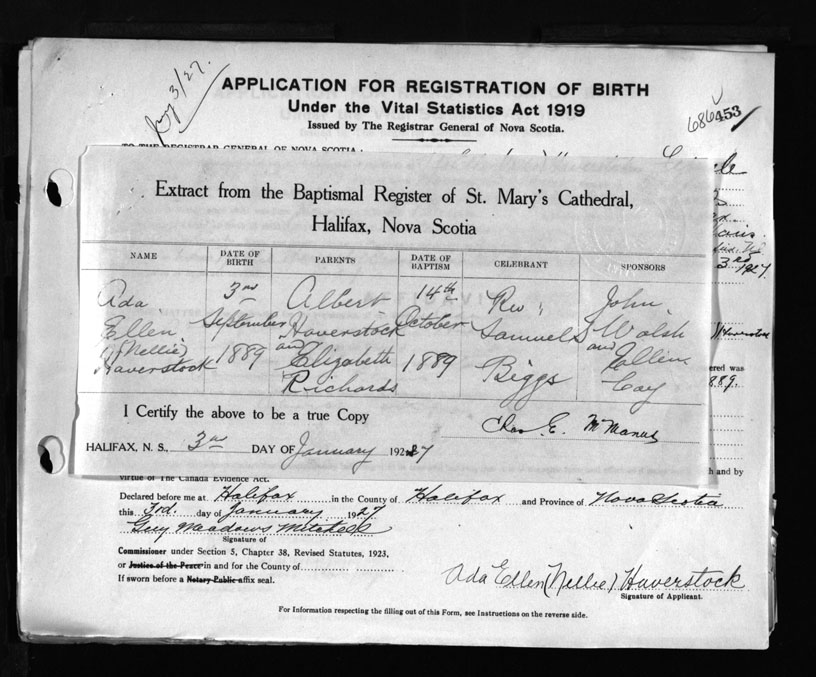 Jany 3/27.
APPLICATION FOR REGISTRATION OF BIRTH
Under the Vital Statistics Act 1919
Issued by The Registrar General of Nova Scotia.
686453
TO THE REGISTRAR GENERAL OF NOVA SCOTIA:
Extract from the Baptismal Register of St. Mary's Cathedral,
Halifax, Nova Scotia
NAME DATE OF BIRTH PARENTS DATE OF BAPTISM CELEBRANT SPONSORS
Ada 3rd Albert 14th Rev. John
Ellen September Haverstock October Samuel S Walsh
(Nellie) 1889 and Elizabeth 1889 Biggs and Ellen
Haverstock Richards Coy
3rd
1927
Haverstock
ered was
889.
I Certify the above to be a true Copy
Chas E. McManus
HALIFAX, N. S., 3rd DAY OF January 1927
h and by
virtue of The Canada Evidence Act.
Declared before me at Halifax in the County of Halifax and Province of Nova Scotia
this 3rd. day of January 1927
Guy Meadows Mitchell
Signature of
Commissioner under Section 5, Chapter 38, Revised Statutes, 1923,
or Justice of the Peace in and for the County of
If sworn before a Notary Public affix seal.
Ada Ellen (Nellie) Haverstock
Signature of Applicant.
For Information respecting the filling out of this Form, see Instructions on the reverse side.